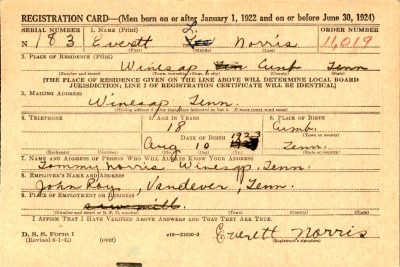 REGISTRATION CARD—(Men born on or after January 1, 1922 and on or before June 30, 1924)
SERIAL NUMBER 1. NAME (Print) ORDER NUMBER
N 183 Everett L. Lee Norris 11019
2. PLACE OF RESIDENCE (Print)
Winesap Cumb Tenn
(Number and street) (Town, township, village, or city) (County) (State)
[THE PLACE OF RESIDENCE GIVEN ON THE LINE ABOVE WILL DETERMINE LOCAL BOARD
JURISDICTION; LINE 2 OF REGISTRATION CERTIFICATE WILL BE IDENTICAL]
3. MAILING ADDRESS
Winesap Tenn.
[Mailing address if other than place indicated on line 2. If same insert word same]
4. TELEPHONE 5. AGE IN YEARS 6. PLACE OF BIRTH
18 Cumb.
DATE OF BIRTH (Town or county)
Aug 10 1923 Tenn.
(Exchange) (Number) (Mo.) (Day) (Yr.) (State or country)
7. NAME AND ADDRESS OF PERSON WHO WILL ALWAYS KNOW YOUR ADDRESS
Tommy Norris Winesap, Tenn.
8. EMPLOYER'S NAME AND ADDRESS
John Roy, Vandever, Tenn.
9. PLACE OF EMPLOYMENT OR BUSINESS
saw mill.
(Number and street or R. F. D. number) (Town) (County) (State)
I AFFIRM THAT I HAVE VERIFIED ABOVE ANSWERS AND THAT THEY ARE TRUE.
D. S. S. Form 1
(Revised 6-1-42) (over) 16—21630-2 Everett Norris
(Registrant's signature)